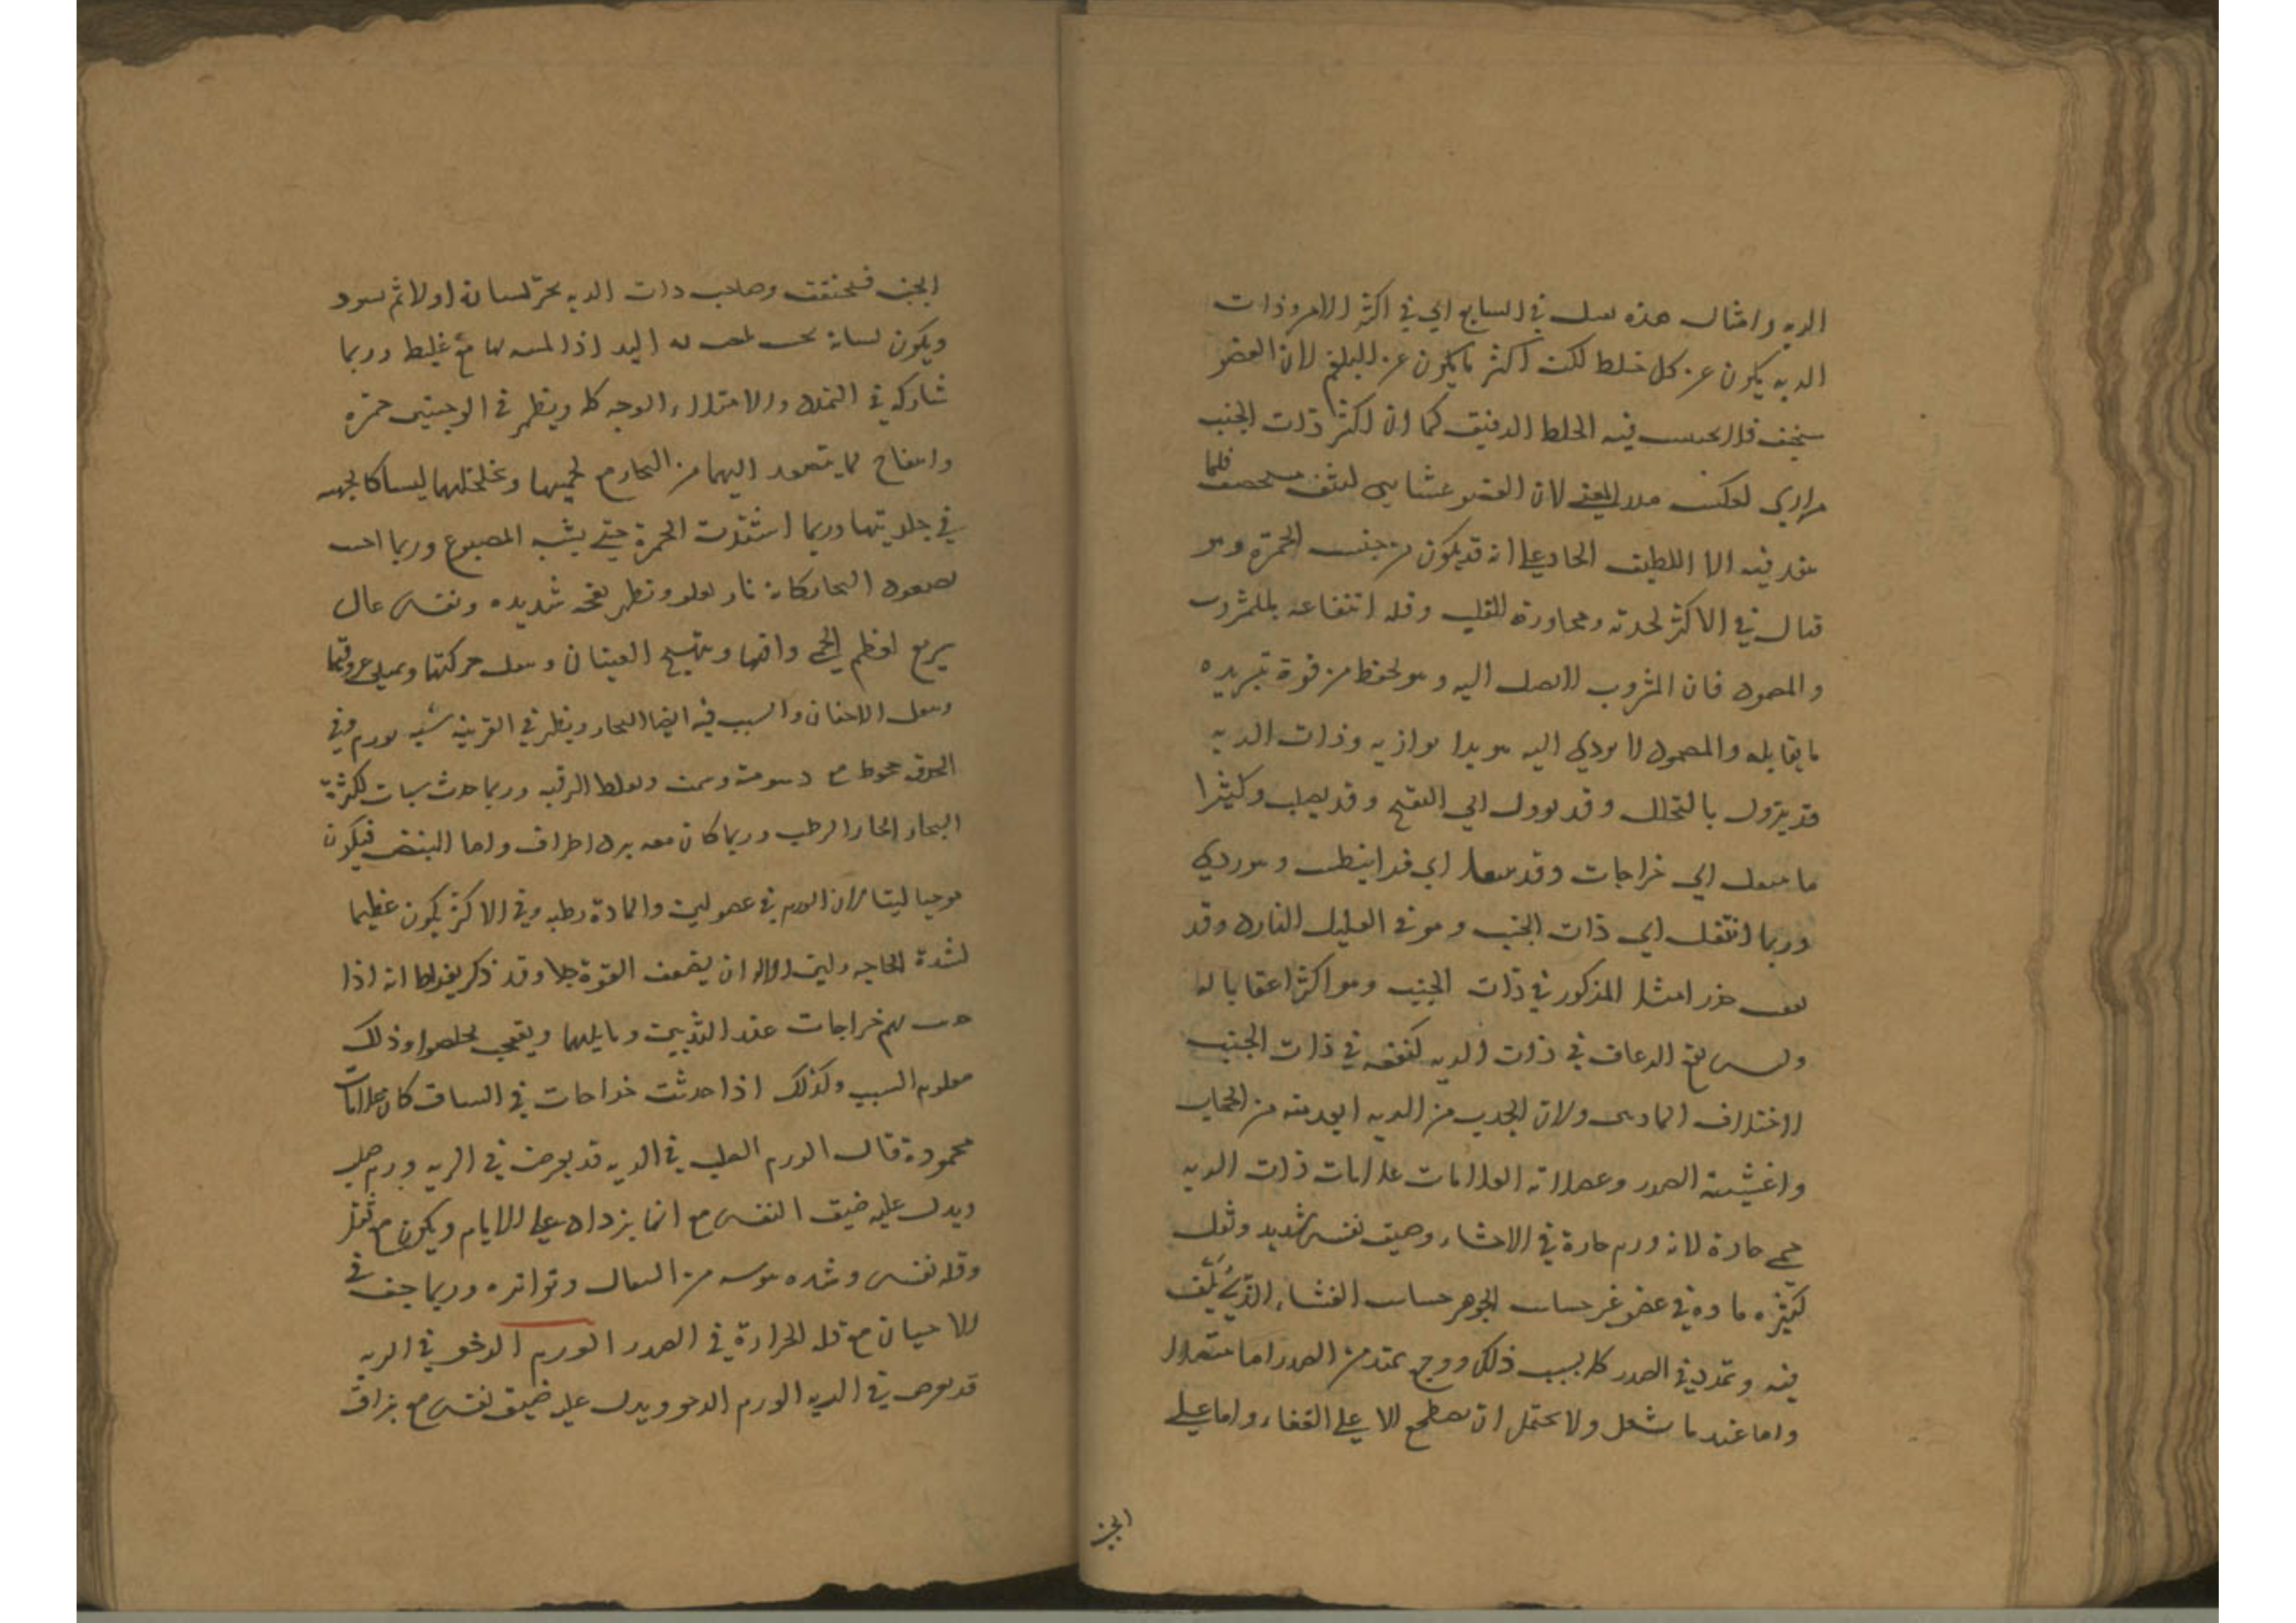 الريه وامثال هذه يقتل في السابع اي في اكثر الامر وذات
الريه يكون عن كل خلط لكن اكثر ما يكون عن البلغم لان العضو
سخيف قلا يحتبس فيه الخلط الرقيق كما ان اكثر ذات الجنب
مراري لعكس هذا المعني لان العضو غشايي كثيف مستحصف فلما
ينفذ فيه الا اللطيف الحاد علي انه قد يكون من جنس الحمرة وهو
قتال في الاكثر لحدته ومجاورة للقلب وقله انتفاعه بالمشروب
والمضمود فان المشروب لا يصل اليه وهو يحفظ من قوة تبريده
ما يقابله والمضمود لا يودي اليه تبريدا يوازيه وذات الريه
قد يزول بالتحلل وقد يوول الي التقيح وقد يصلب وكثيرا
ما ينتقل الي خراجات وقد ينتقل الي قرانيطس وهو ردي
وربما انتقل الي ذات الجنب وهو في القليل النادر وقد
يعقب خدر امثل المذكور في ذات الجنب وهو اكثر اعقابا له
وليس نفع الرعاف في ذات الريه كنفعه في ذات الجنب
لاختلاف المادتين ولان الجذب من الريه ابعد منه من الحجاب
واغشيته الصدر وعضلاته العلامات علامات ذات الريه
حمي حادة لانه ورم حارة في الاحشاء وضيق نفس شديد وثقل
لكثره ماده في عضو غير حساس الجوهر حساس الغشاء الذي يلف
فيه وتمدد في الصدر كله بسبب ذلك ووجع يمتد من الصدر
واما عند ما يسعل ولا يحتمل ان يضطجع الا علي القفاء واما علي
الجنب
الجنب فيختنق وصاحب ذات الريه يحمر لسانه اولا ثم يسود
ويكون لسانه بحيث يلصق به اليد اذا لمسه بها مع غلظ وربما
شاركه في التمدد والامتلاء الوجه كله ويظهر في الوجنتين حمرة
وانتفاخ لما يتصعد اليهما من البخار مع لحميتها وتخلخلهما ليسا كالجبهه
في جلديتها وربما اشتدت الحمرة حتي يشبه المصبوغ وربما احس
بصعود البخار كانه نار يعلو ويظهر نفخه شديده ونفس عال
سريع لعظم الحمي وافتها ويتهيج العينان ويثقل حركتها ويمتلي عروقها
ويثقل الاجفان والسبب فيه ايضا البخار ويظهر في القرنيه شبيه بورم وفي
الحدقه جحوظ مع دسومة وسمن ويغلظ الرقبه وربما حدث سبات لكثرة
البخار الحار الرطب وربما كان معه برد اطراف واما النبض فيكون
موجيا لينا لان الورم في عضو لين والمادة رطبه وفي الاكثر يكون عظيما
لشدة الحاجه ولين الاله الا ان يضعف القوة جدا وقد ذكر بقراط انه اذا
حدث بهم خراجات عند الثديين وما يليهما ويتقيح تخلصوا وذلك
معلوم السبب وكذلك اذا حدثت خراجات في الساق كان علامات
محمودة قال الورم الصلب في الريه قد يعرض في الريه ورم صلب
ويدل عليه ضيق النفس مع انما يزداد علي الايام ويكون مع ثقل
وقله نفس وشده يبوسه من السعال وتواتره وربما خف في
الاحيان مع قله الحرارة في الصدر الورم الرخو في الريه
قد يعرض في الريه الورم الرخو ويدل عليه ضيق نفس مع بزاق